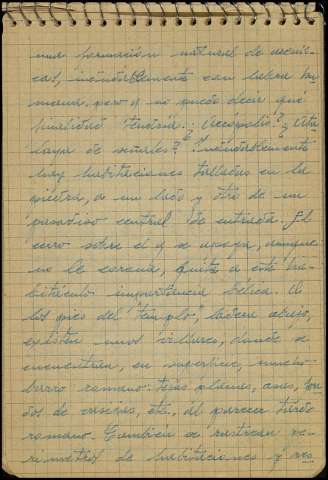 una formación natural de arenis-
cas, indudablemente con labra hu-
mana, pero q no puedo decir qué
finalidad tendría. ¿Necrópolis? ¿Ata-
laya de señales? Indudablemente
hay habitaciones talladas en la
piedra, a un lado y otro de un
pasadizo central de entrada. El
cerro sobre el q se apoya, aunque
no le corona, quita a este ha-
bitáculo importancia bélica. A
los pies del templo, ladera abajo,
existen unos villares, donde se
encuentran, en superficie, mucho
barro romano: tejas planas, asas, fon-
dos de vasijas, etc., al parecer tardo
romano. También se rastrean pe-
rímetros de habitaciones y